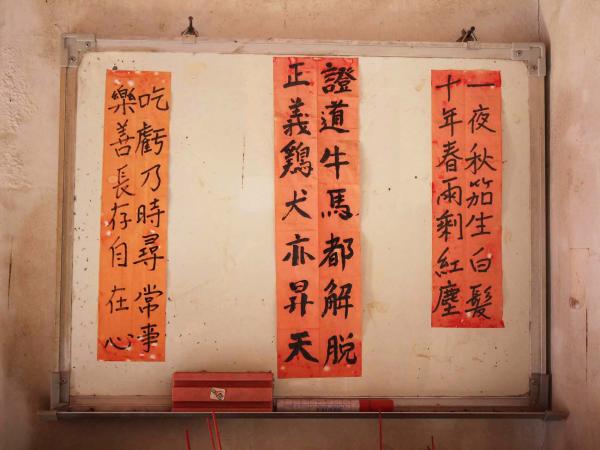 一夜秋笳生白髮
十年春雨剩紅塵
證道牛馬都解脫
正義鷄犬亦昇天
吃虧乃時尋常事
樂善長存自在心